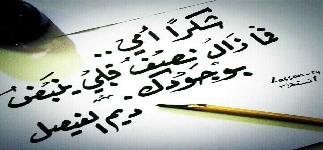 شكرًا أمي..
فما زال نصيف قلبي ينبض
بوجودك
ديم الفيصل